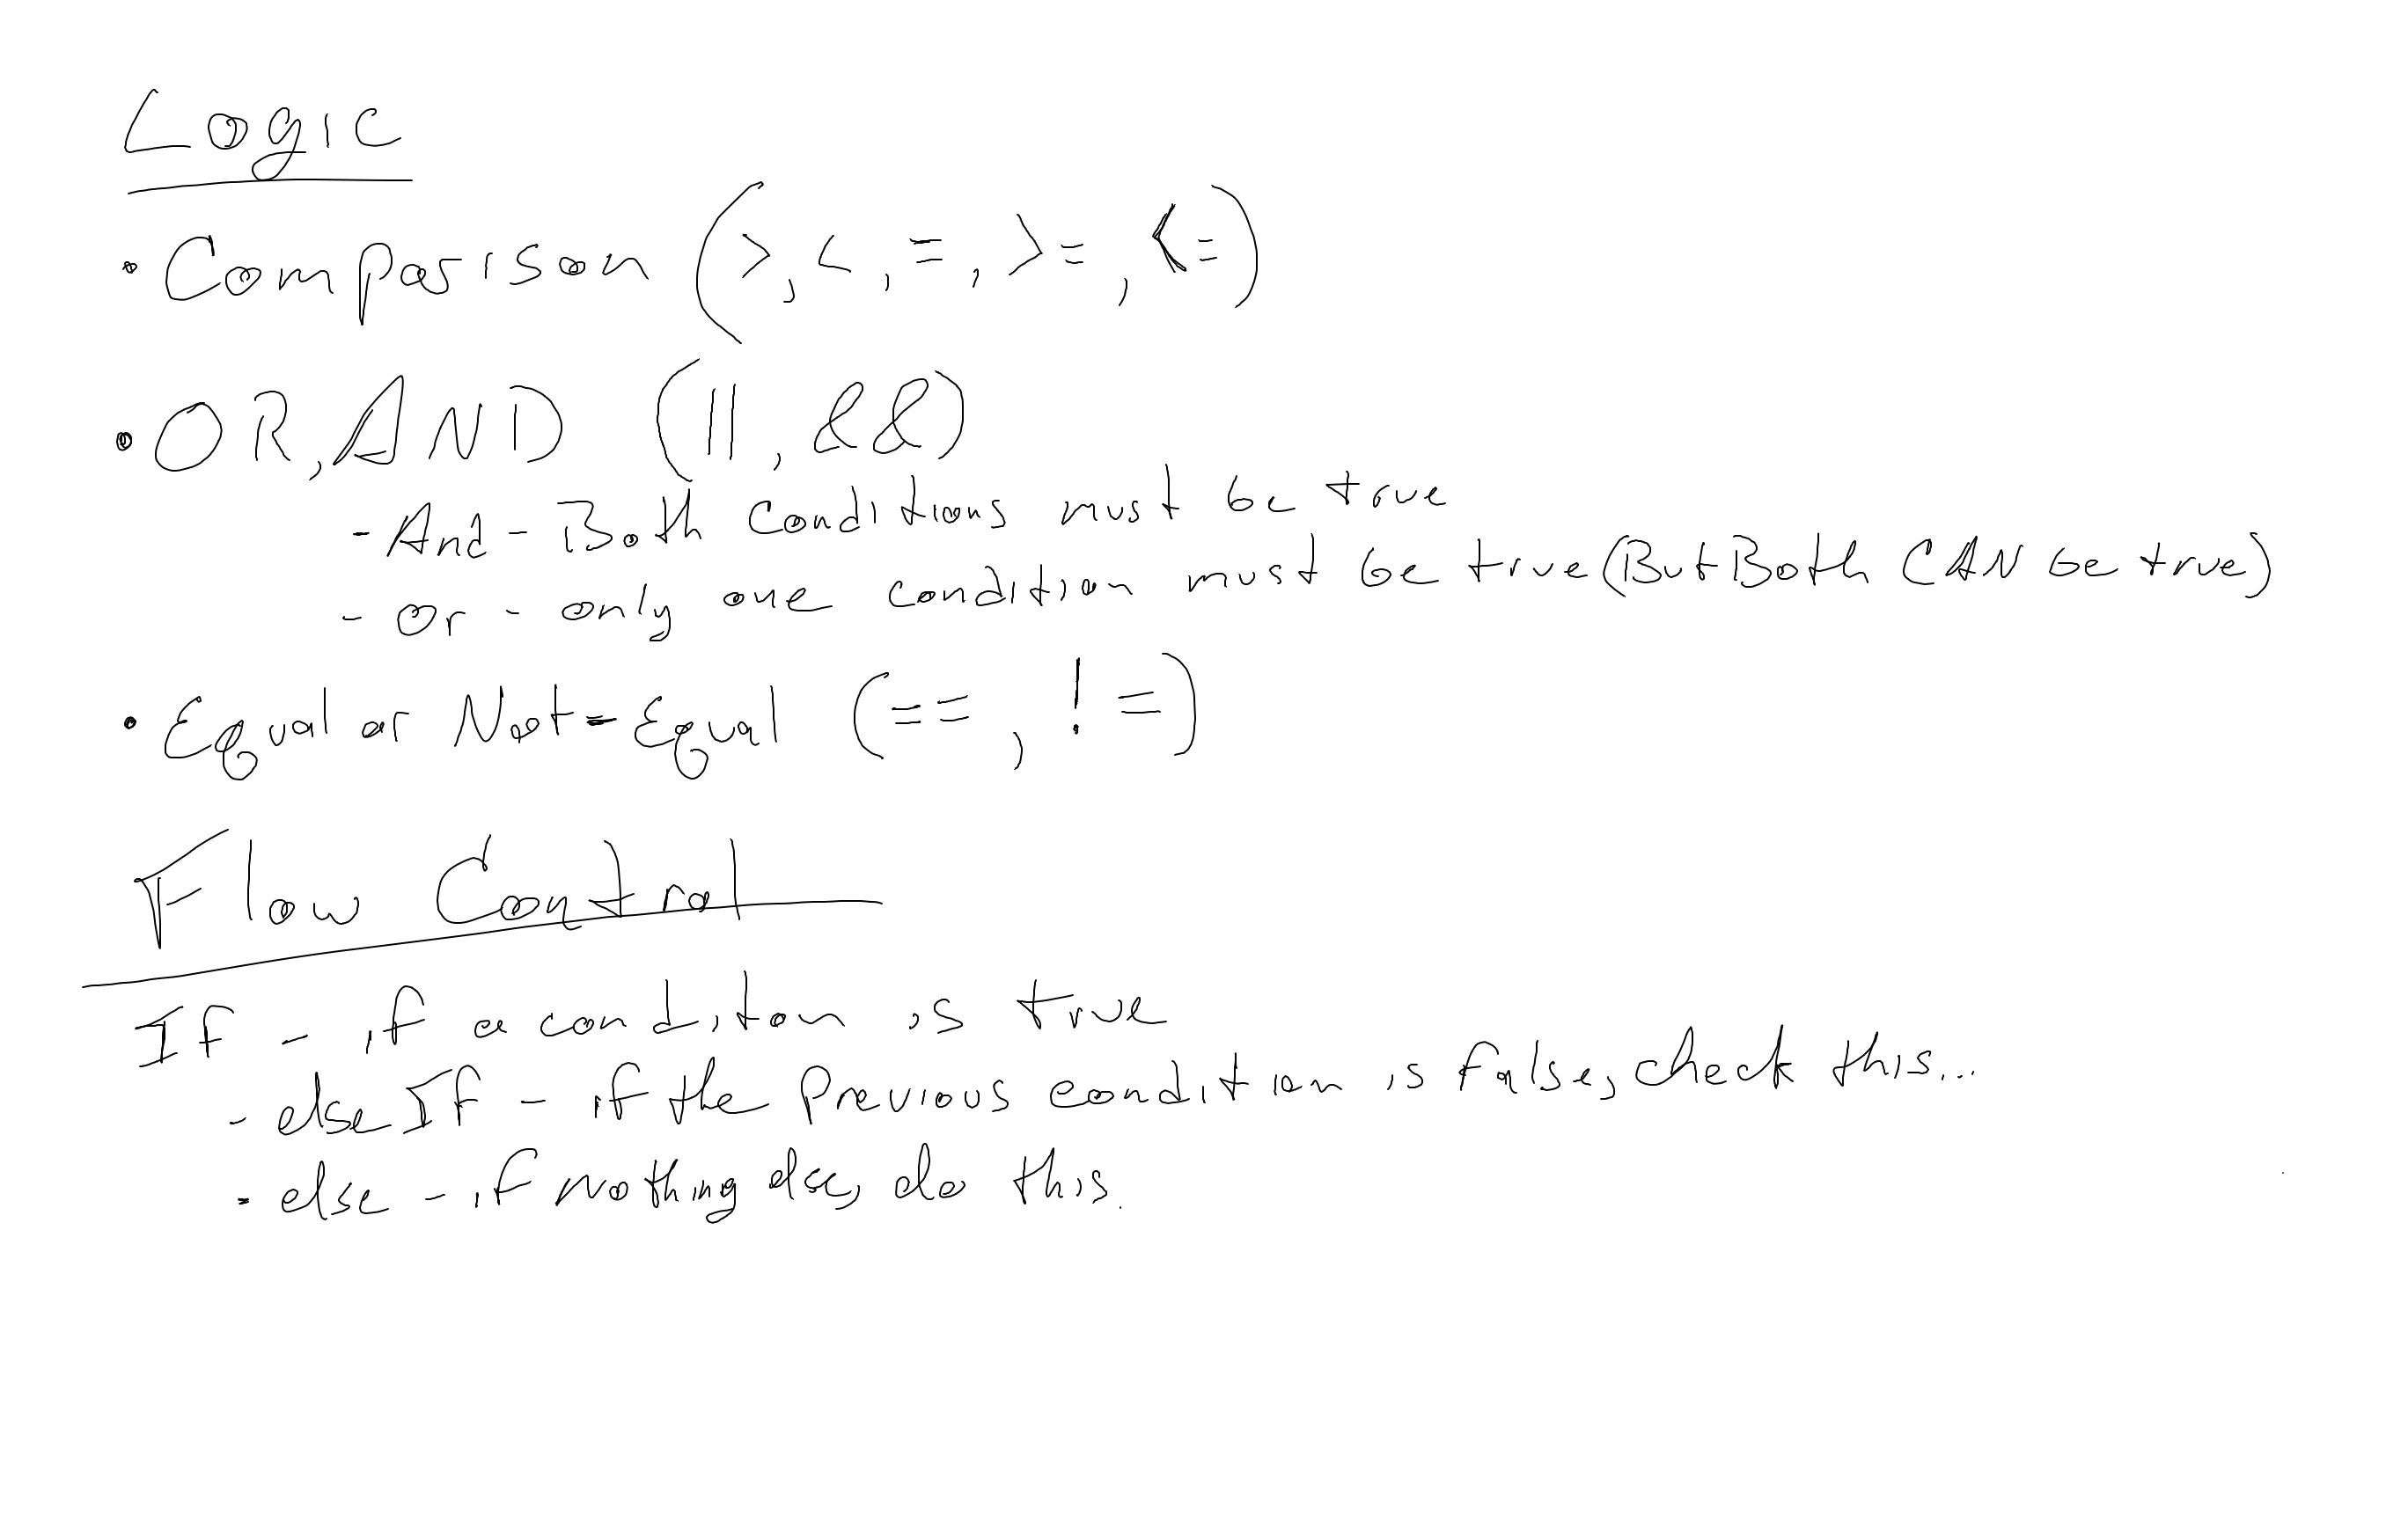 Logic
• Comparison (>, <, =, >=, <=)
• OR, AND (||, &&)
- And - Both conditions must be true
- or - only one condition must be true (But Both CAN be true)
• Equal or Not-Equal (==, !=)
Flow Control
IF - if a conditon is true
- else IF - if the Previous condition is false, check this...
- else - if nothing else, do this.